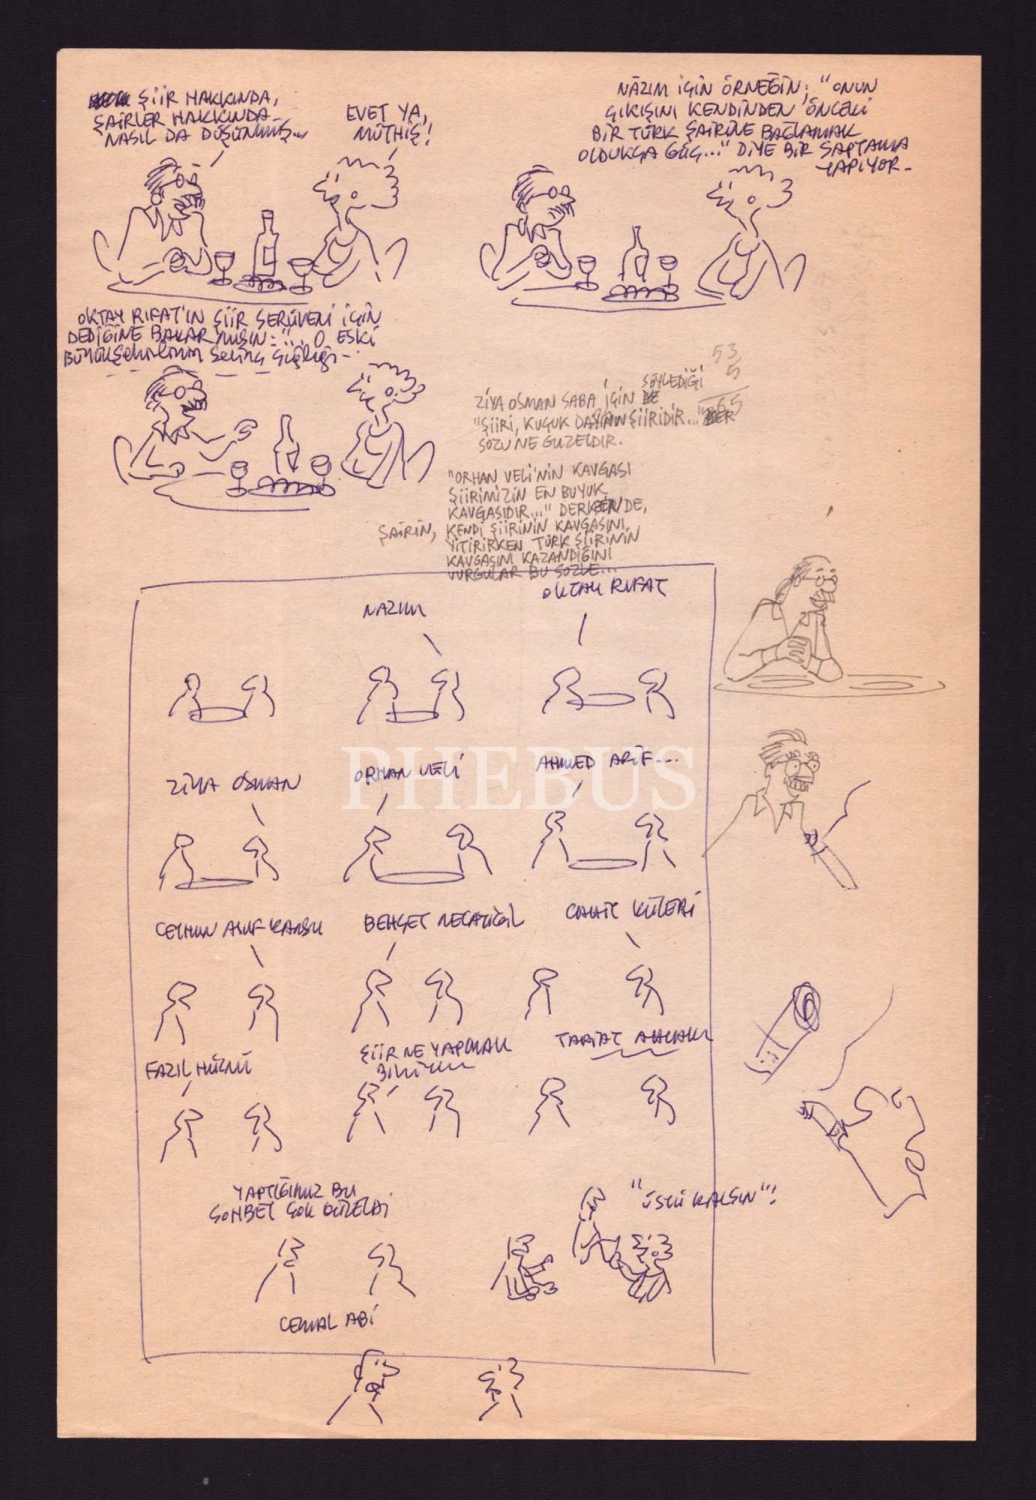 ŞİİR HAKKINDA,
ŞAİRLER HAKKINDA
NASIL DA DÜŞÜNMÜŞ...
EVET YA,
MÜTHİŞ!
NÂZIM İÇİN ÖRNEĞİN; "ONUN
ÇIKIŞINI KENDİNDEN ÖNCEKİ
BİR TÜRK ŞAİRİNE BAĞLAMAK
OLDUKÇA GÜÇ..." DİYE BİR SAPTAMA
YAPIYOR.
OKTAY RIFAT'IN ŞİİR SERÜVENİ İÇİN
DEDİĞİNE BAKAR MISIN: "... O ESKİ
53
5
265
ZİYA OSMAN SABA İÇİN SÖYLEDİĞİ
"ŞİİRİ, KÜÇÜK ŞİİRİDİR..."
SÖZÜ NE GÜZELDİR.
"ORHAN VELİ'NİN KAVGASI
ŞİİRİMİZİN EN BÜYÜK
KAVGASIDIR..." DERKEN DE,
ŞAİRİN, KENDİ ŞİİRİNİN KAVGASINI
YİTİRİRKEN TÜRK ŞİİRİNİN
KAVGASINI KAZANDIĞINI
VURGULAR BU SÖZLE...
NAZIM
OKTAY RIFAT
ZİYA OSMAN
ORHAN VELİ
AHMED ARİF...
CEYHUN ATUF KANSU
BEHÇET NECATİGİL
CAHİT KÜLEBİ
FAZIL HÜSNÜ
ŞİİR NE YAPMAK
YAPTIĞIMIZ BU
SOHBET ÇOK GÜZELDİ
"ÜSTÜ KALSIN"!
CEMAL ABİ
PHEBUS